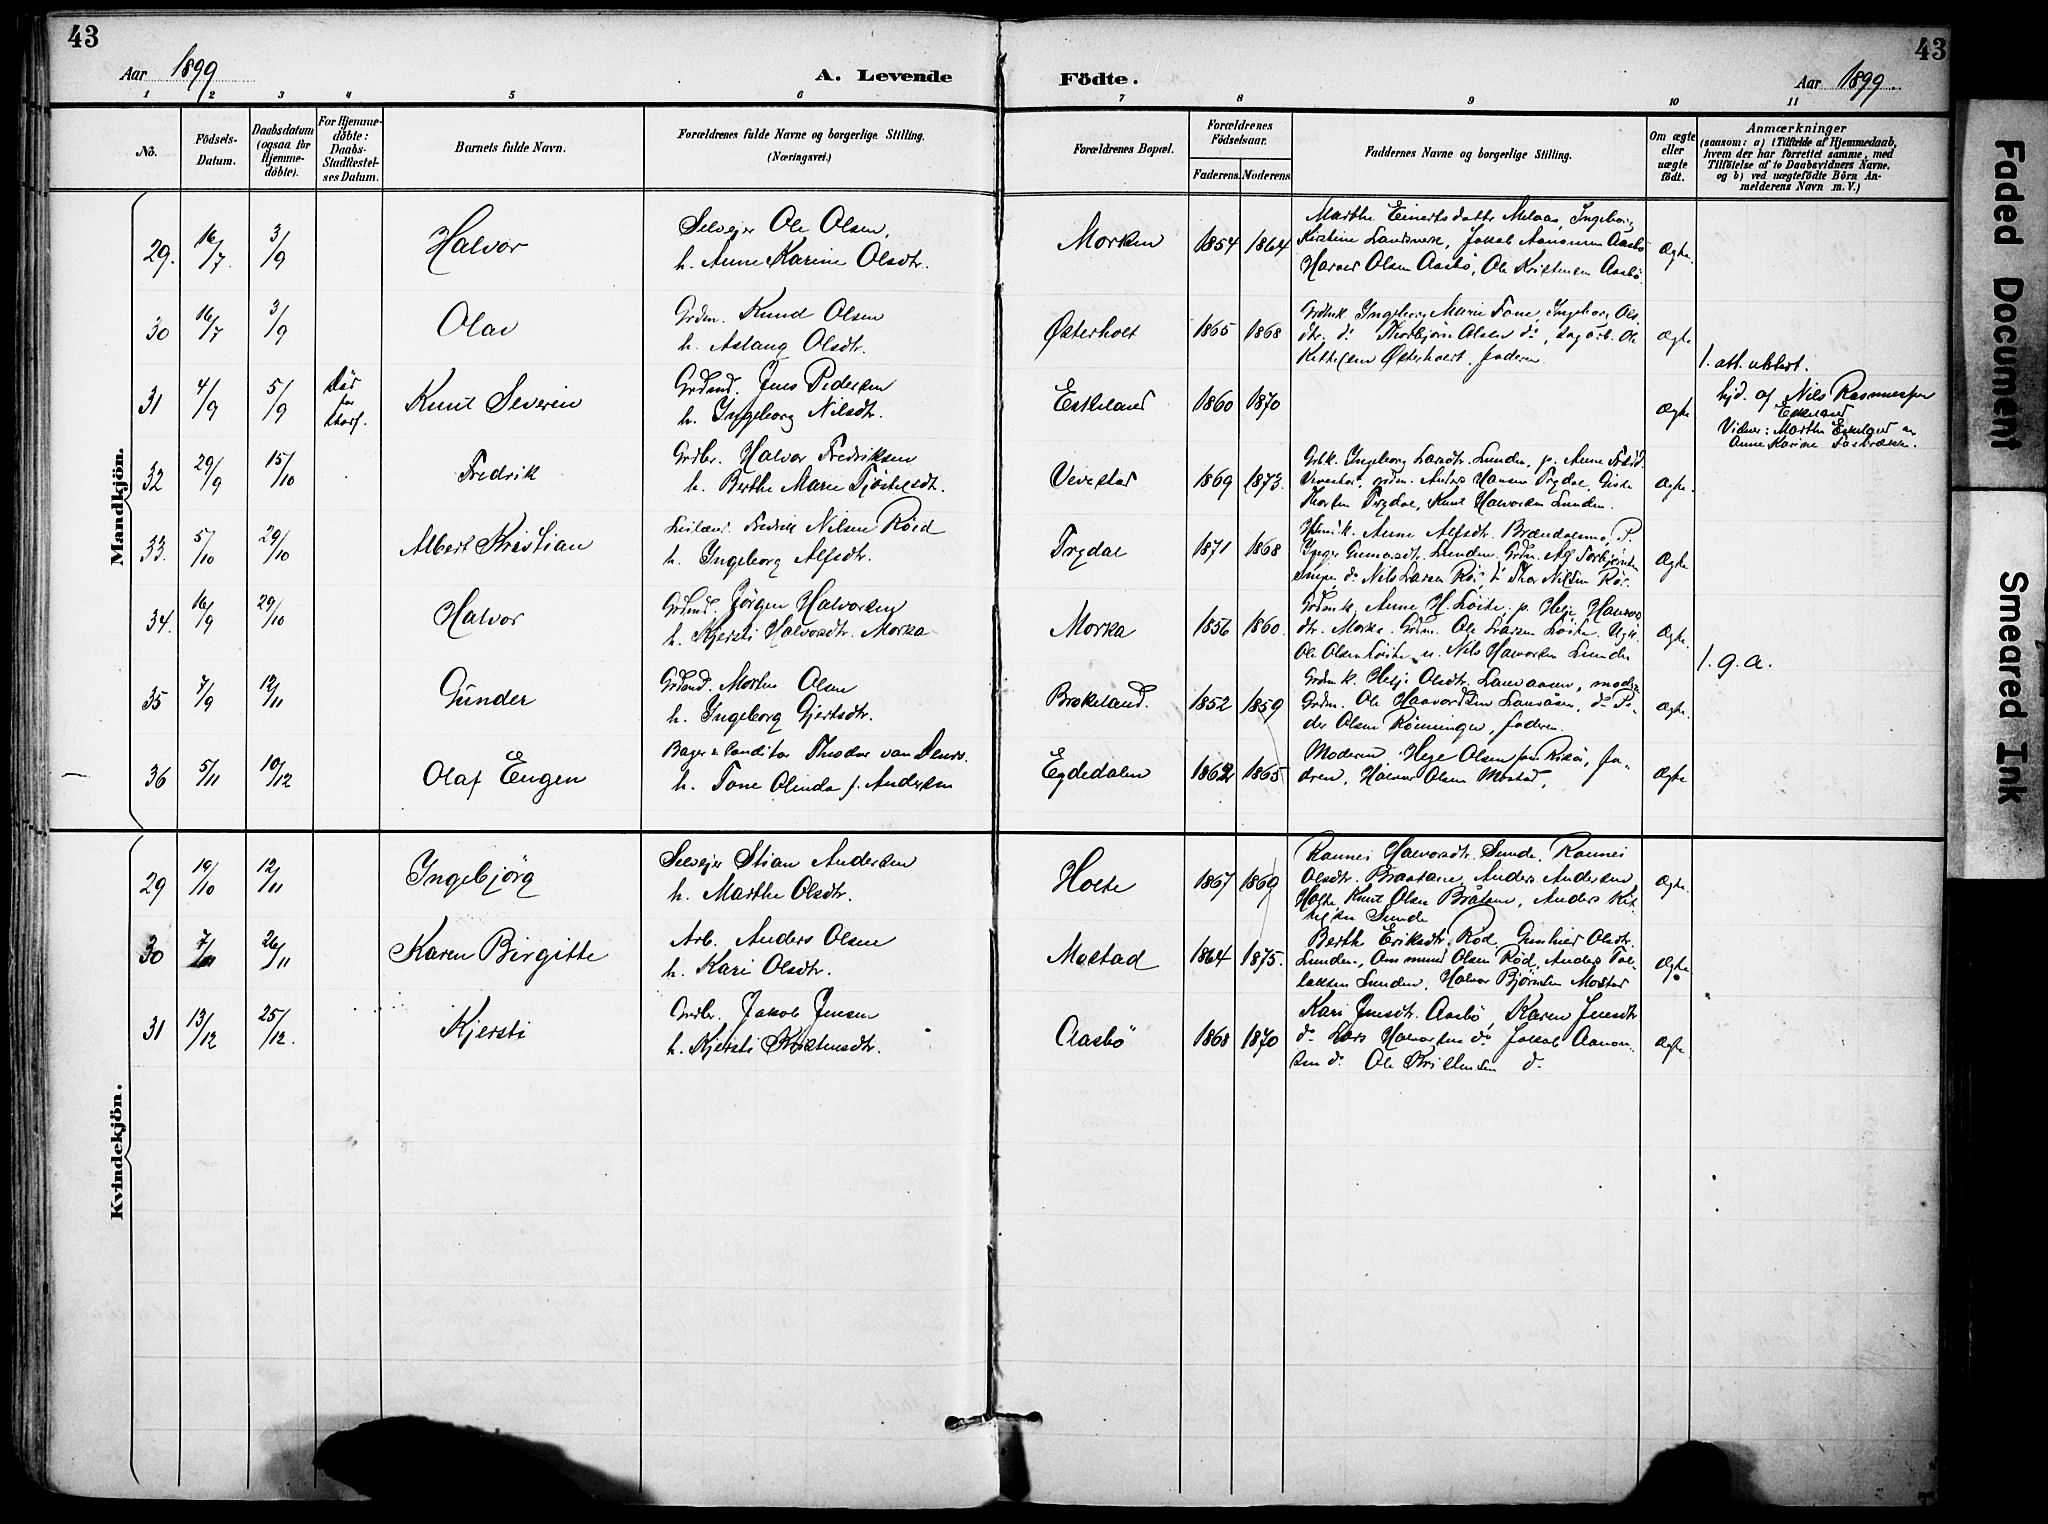 43
43
Aar 1899
A. Levende
Födte.
Aar 1899
1 2 3 4 5 6 7 8 9 10 11
No.
Födsels-Datum.
Daabsdatum (ogsaa for Hjemme-döbte).
For Hjemme-döbte: Daabs-Stadfæstel-ses Datum.
Barnets fulde Navn.
Forældrenes fulde Navne og borgerlige Stilling.
(Næringsvei.)
Forældrenes Bopæl.
Forældrenes Födselsaar.
Faderens. Moderens.
Faddernes Navne og borgerlige Stilling.
Om ægte eller uægte födt.
Anmærkninger
(saasom: a) i Tilfælde af Hjemmedaab,
hvem der har forrettet samme, med
Tilföielse af to Daabsvidners Navne,
og b) ved uægtefödte Börn An-
melderens Navn m. V.)
Mandkjön.
29. 16/7 3/9 Halvor
Selvejer Ole Olsen,
h. Anne Karine Olsdtr.
Morken 1854 1864
Marthe Einertsdatter Melaas, Ingeborg
Kirstine Landsverk, Jakob Aanonsen Aasbö
Olsen Aasbö, Ole Kristensen Aasbö.
Ægte.
30 16/7 3/9 Olav
Grdm. Knud Olsen
h. Aslaug Olsdtr.
Østerholt 1865 1868
Grdmk. Ingeborg Marie Tone, Ingeborg Ols
dtr. do Thorbjörn Olsen do, Ole
Kittelsen Østerholt, faderen
Ægte
1. att. utstedt.
31 4/9 5/9 Död för
Knut Severin
Grdmd. Jens Pedersen
h. Ingeborg Nilsdtr.
Eskeland 1860 1870
Ægte
hjd. af Nils Rasmussen
Eskeland
Vidner: Marthe Eskeland og
Anne Karine
32 29/9 15/10 Fredrik
Grdbr. Halvor Fredriksen
h. Berthe Marie Tjöstelsdt.
Vevestad 1869 1873.
Grbk. Ingeborg Larsdtr. Lunden, p. Anne
Vevestad, grdm. Anders Hansen Trydal,
Thorsten Trydal, Knut Halvorsen Lunden.
Ægte.
33. 5/10 29/10 Albert Kristian
Fredrik Nilsen Röed
h. Ingeborg Alfsdtr.
Trydal 1871 1868
Anne Alfsdtr. Brændalsmo, P.
Inger Gunarsdtr. Lunden. Grdm. Alf Torbjörnsen
do Nils Larsen Röi, do Thor Nilsen Röi.
Ægte
34. 16/9 29/10 Halvor
Grdmd. Jörgen Halvorsen
h. Kjersti Halvorsdtr. Morka
Morka 1856 1860.
Grdmk. Anne H. Löite, p. Helje Halvors
dtr. Morka. Grdm. Ole Larsen Löite. Ugk.
Ole Olsen Löite, u. Nils Halvorsen Lunde
Ægte.
1. g. a.
35 7/9 12/11 Gunder
Grdmd. Morten Olsen
h. Ingeborg Gjertsdtr.
Brokeland. 1852 1859
Grdmk. Helje Olsdtr. Lanvaasen, moder
Grdm. Ole Haavordsen Lanvåsen, do Pe-
der Olsen Rönningen, faderen.
Ægte.
36 5/11 10/12 Olaf Eugen
Bager & Conditor Theodor van
h. Tone Olinda f. Andersen
Egdedalen 1862 1865
Moderen, Hege Olsen fra Risör, fa-
deren, Halvor Olsen Mostad,
Ægte
Kvindekjön.
29 19/10 12/11 Ingebjörg
Selvejer Stian Andersen
h. Marthe Olsdtr.
Holte 1867 1869
Rannei Halvorsdtr. Sunde, Rannei
Olsdtr. Braatane, Anders Andersen
Holte, Knut Olsen Bråtane, Anders Kit-
telsen Sunde
Ægte.
30 7/11 26/11 Karen Birgitte
Arb. Anders Olsen
h. Kari Olsdtr.
Mostad 1864 1875.
Berth Eriksdtr. Röd, Gunhild Olsdtr.
Lunden, Ommund Olsen Röd, Anders Tol-
laksen Lunden, Halvor Björnsen Mostad
Ægte
31 13/12 25/12. Kjersti
Grdbr. Jakob Jensen
h. Kjersti Kristensdtr.
Aasbö 1868 1870
Kari Jensdtr. Aasbö Karen Jensdtr
do Lars Halvorsen do, Jakob Aanon-
sen do Ole Kristensen do
Ægte
Faded Document
Smeared Ink